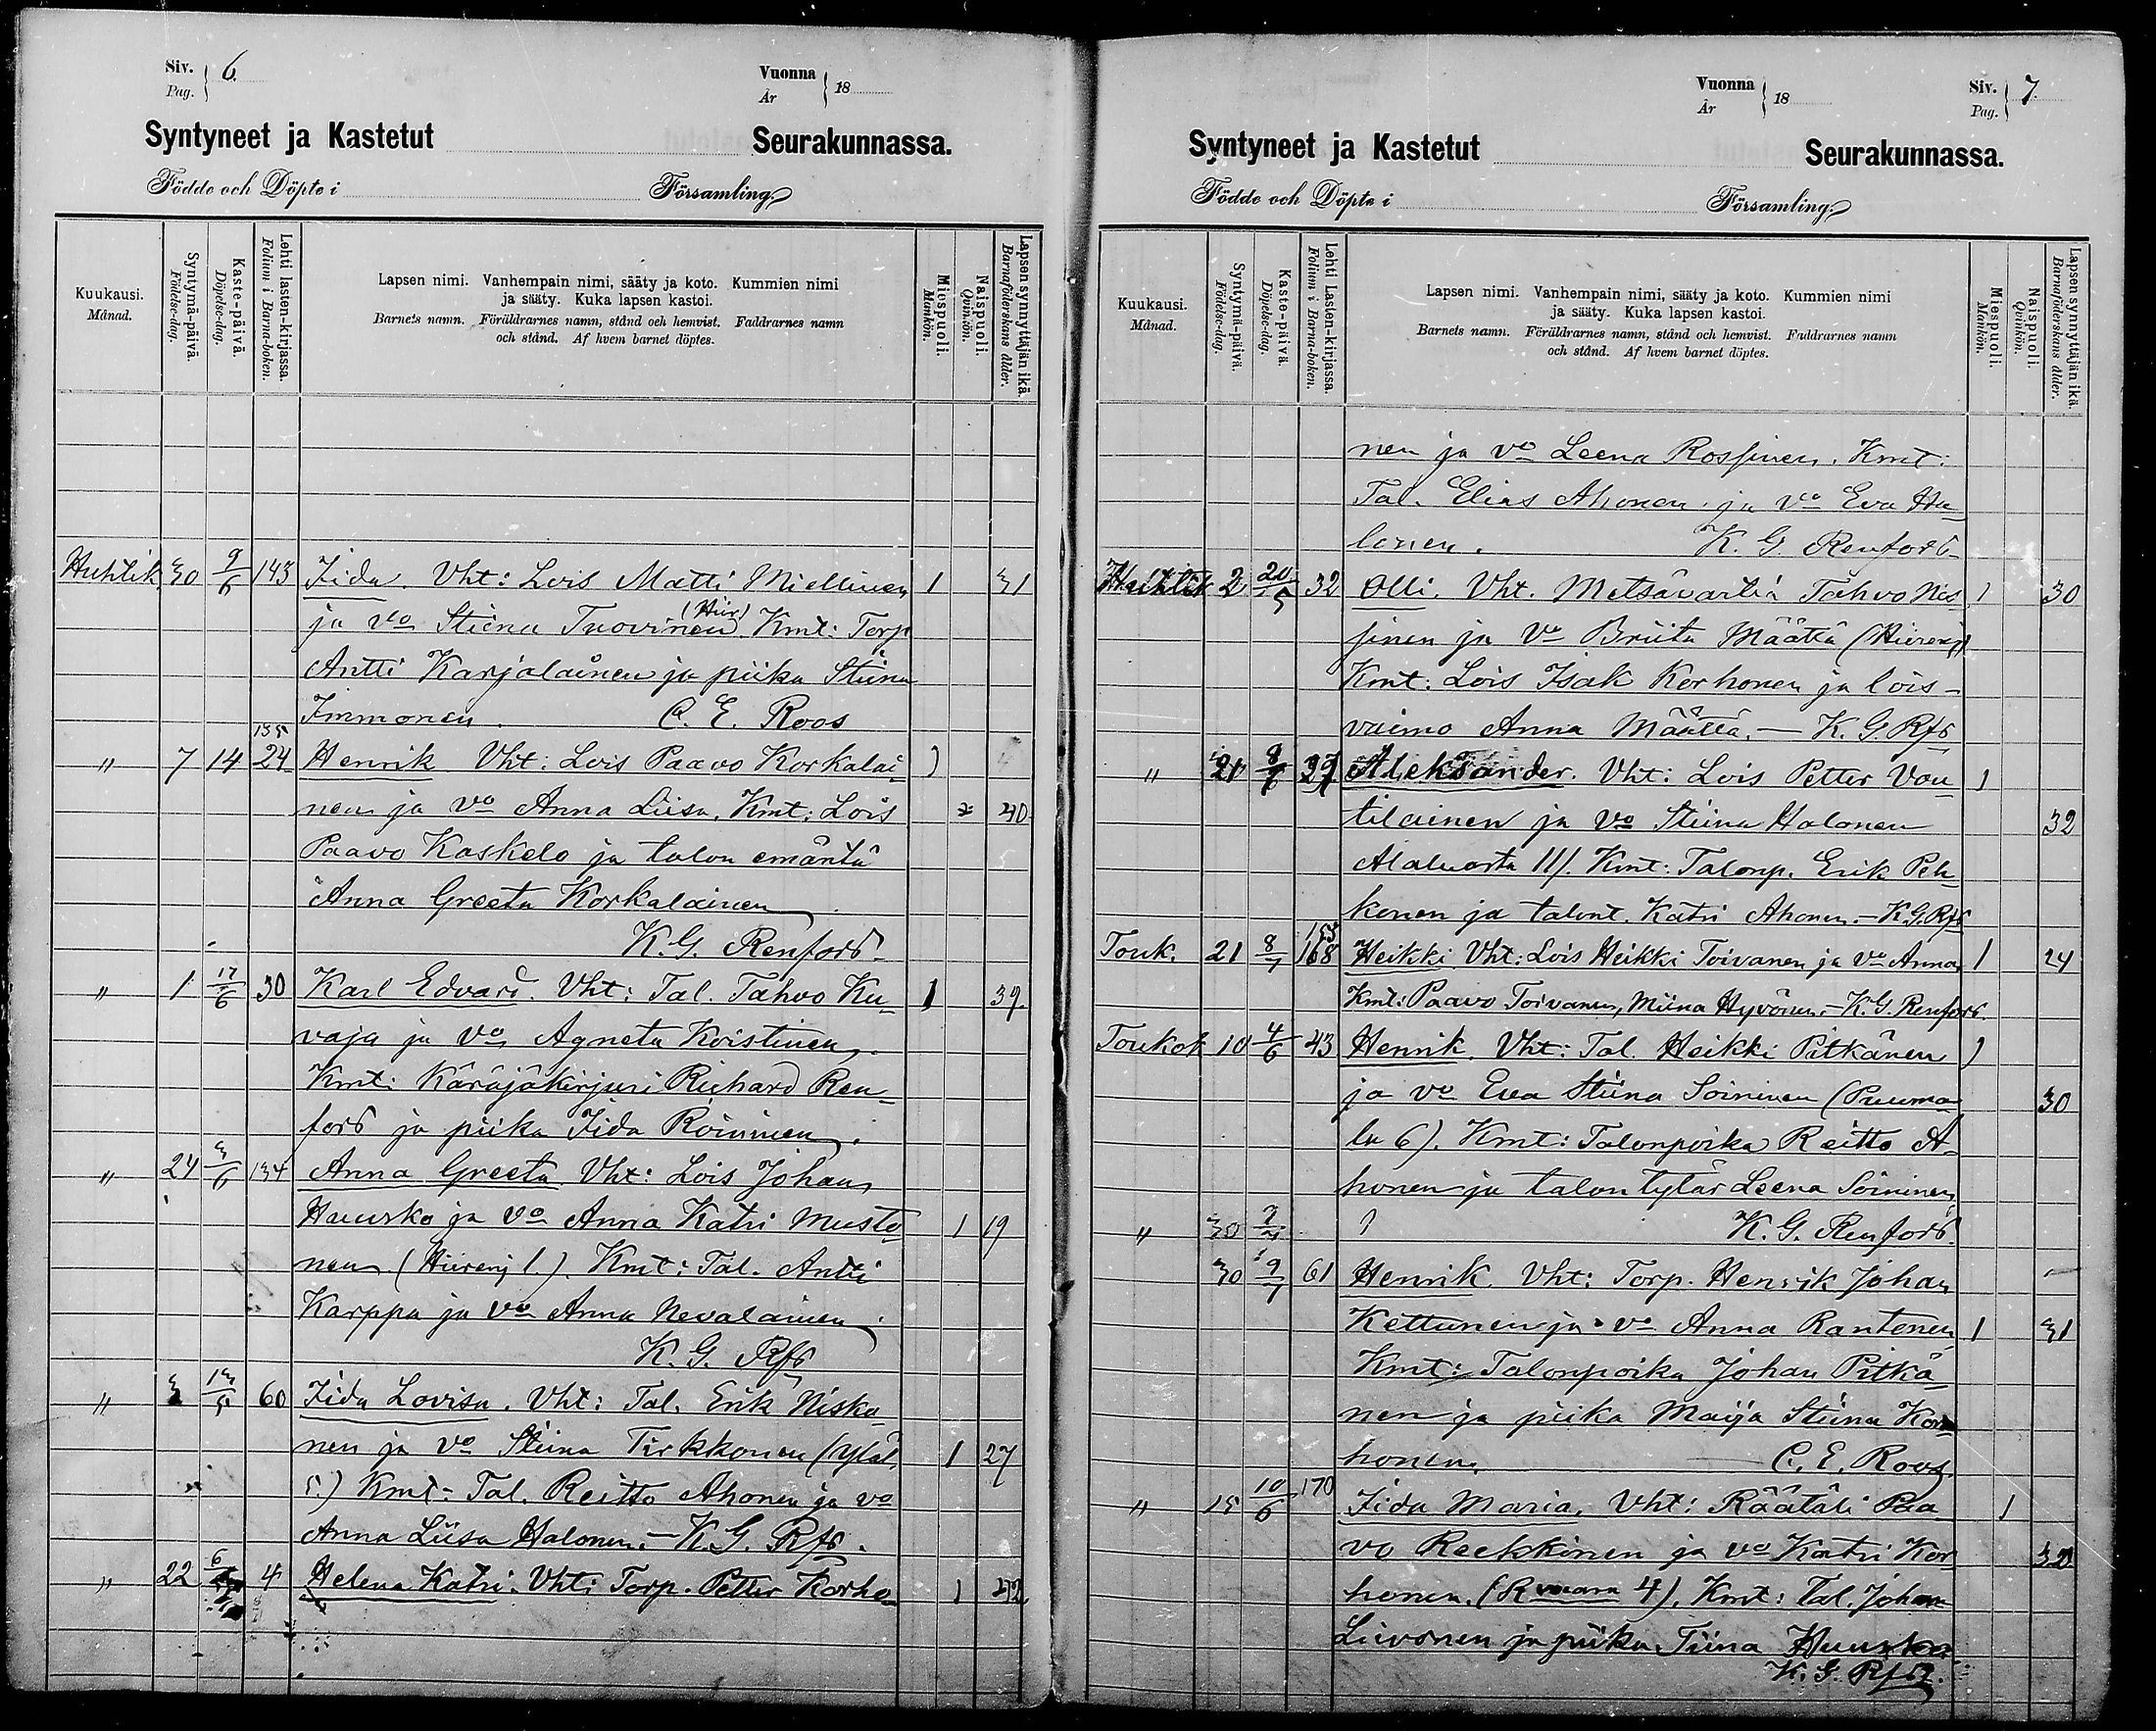 Siv. 6.
Pag.
Vuonna 18
År
Syntyneet ja Kastetut Seurakunnassa.
Födde och Döpte i Församling.
Kuukausi.
Månad.
Syntymä-päivä.
Födelse-dag.
Kaste-päivä.
Döpelse-dag.
Lehti lasten-kirjassa.
Folium i Barna-boken.
Lapsen nimi. Vanhempain nimi, sääty ja koto. Kummien nimi
ja sääty. Kuka lapsen kastoi.
Barnets namn. Föräldrarnes namn, stånd och hemvist. Faddrarnes namn
och stånd. Af hvem barnet döptes.
Miespuoli.
Mankön.
Naispuoli.
Quinkön.
Lapsen synnyttäjän ikä.
Barnaföderskans ålder.
Huhtik. 30 9/6 143 Iida. Vht: Lois Matti Miettinen 1 31
(Hiir)
ja vo Stiina Tuovinen. Kmt: Torp
Antti Karjalainen ja piika Stiina
Immonen. C. E. Roos
135
" 7 14 24 Henrik Vht: Lois Paavo Korkalai- 1
nen ja vo Anna Liisa. Kmt: Lois 40
Paavo Kaskelo ja talon emäntä
Anna Greeta Korkalainen
K. G. Renfors.
" 1 17/6 30 Karl Edvard. Vht: Tal. Tahvo Ku- 1 39.
vaja ja vo Agneta Koistinen.
Kmt: Käräjäkirjuri Richard Ren-
fors ja piika Iida Röininen.
" 24 3/6 134 Anna Greeta Vht: Lois Johan
Huusko ja vo Anna Katri Musto- 1 19
nen. (Hiirenj 1.). Kmt: Tal. Antti
Karppa ja vo Anna Nevalainen.
K. G. Rfs
" 3 13/5 60 Iida Lovisa. Vht: Tal. Erik Niska-
nen ja vo Stiina Tirkkonen (Ylät. 1 27
5.) Kmt: Tal. Reitto Ahonen ja vo
Anna Liisa Halonen. — K. G. Rfs.
" 22 6 4 Helena Katri. Vht: Torp. Petter Korho- 1 42
Vuonna 18
År
Siv. 7.
Pag.
Syntyneet ja Kastetut Seurakunnassa.
Födde och Döpte i Församling.
Kuukausi.
Månad.
Syntymä-päivä.
Födelse-dag.
Kaste-päivä.
Döpelse-dag.
Lehti Lasten-kirjassa.
Folium i Barna-boken.
Lapsen nimi. Vanhempain nimi, sääty ja koto. Kummien nimi
ja sääty. Kuka lapsen kastoi.
Barnets namn. Föräldrarnes namn, stånd och hemvist. Faddrarnes namn
och stånd. Af hvem barnet döptes.
Miespuoli.
Mankön.
Naispuoli.
Quinkön.
Lapsen synnyttäjän ikä.
Barnaföderskans ålder.
nen ja vo Leena Rossinen. Kmt:
Tal. Elias Ahonen ja vo Eva Ha-
lonen. K. G. Renfors
Huhtik 2 20/5 32 Olli. Vht. Metsävartia Tahvo Nis- 1 30
sinen ja vo Briita Määttä (Hiirenj)
Kmt: Lois Isak Korhonen ja lois-
vaimo Anna Määttä. — K. G. Rfs
" 21 8/6 37 Aleksander. Vht: Lois Petter Vou- 1
tilainen ja vo Stiina Halonen 32
Alaluosta 11/. Kmt: Talonp. Erik Peh-
konen ja talont. Katri Ahonen. — K. G. Rfs
153
Touk. 21 8/7 168 Heikki Vht: Lois Heikki Toivanen ja vo Anna 1 24
Kmt: Paavo Toivanen, Miina Hyvönen. — K. G. Renfors.
Toukok 10 4/6 43 Henrik. Vht: Tal. Heikki Pitkänen 1
ja vo Eva Stiina Soininen (Puuma- 30
la 6). Kmt: Talonpoika Reitto A-
honen ja talon tytär Leena Soininen
K. G. Renfors.
30 9/7 61 Henrik. Vht: Torp. Henrik Johan
Kettunen ja vo Anna Rantonen 1 31
Kmt: Talonpoika Johan Pitkä-
nen ja piika Maija Stiina Kor-
honen. C. E. Roos
" 15 10/6 170 Iida Maria. Vht: Räätäli Paa- 1
vo Reekkinen ja vo Katri Kor-
honen. (R vaara 4). Kmt: Tal. Johan
Liivonen ja piika Tiina Huusko.
K. G. Rfs.